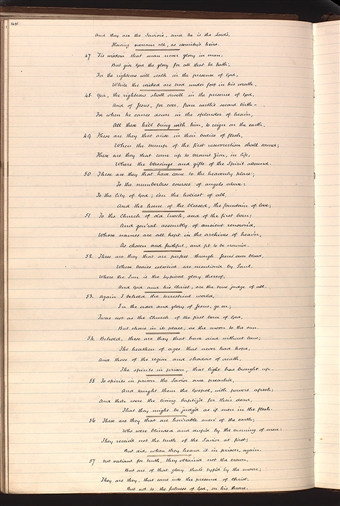 And they are the Savior's, and he is the Lord's,
Having overcome all, as eternity's heirs.
47 'Tis wisdom that man never glory in man,
But give God the glory for all that he hath;
For the righteous will walk in the presence of God,
While the wicked are trod under foot in his wrath.
48. Yea, the righteous shall dwell in the presence of God,
And of Jesus, for ever, from earth's second birth—
For when he comes down in the splendor of heaven,
All these he'll bring with him, to reign on the earth.
49 These are they that arise in their bodies of flesh,
When the trump of the first resurrection shall sound;
These are they that come up to Mount Zion, in life,
Where the blessings and gifts of the spirit abound.
50. These are they that have come to the heavenly place;
To the numberless courses of angels above:
To the city of God; e'en the holiest of all,
And the home of the blessed, the fountain of love;
51. To the Church of old Enoch, and of the first born:
And gen'ral assembly of ancient renowned,
Whose names are all kept in the archives of heaven,
As chosen and faithful, and fit to be crowned.
52. These are they that are perfect through Jesus' own blood,
Whose bodies celestial are mentioned by Paul,
Where the Sun is the typical glory thereof,
And God, and his Christ, are the true judge of all.
53. Again I beheld the terrestrial world,
In the order and glory of Jesus, go on;
'Twas not as the Church of the first born of God,
But shone in its place, as the moon to the sun.
54. Behold, these are they that have died without law;
The heathen of ages that never had hope,
And those of the region and shadow of death,
The spirits in prison, that light has brought up.
55 To spirits in prison the Savior once preached,
And taught them the Gospel, with powers afresh;
And then were the living baptiz'd for their dead,
That they might be judg'd as if men in the flesh.
56 These are they that are hon'rable men of the earth;
Who were blinded and dup'd by the cunning of men:
They receiv'd not the truth of the Savior at first;
But did, when they heard it in prison, again.
57. Not valiant for truth, they obtain'd not the crown,
But are of that glory that's typ'd by the moon;
They are they, that come into the presence of Christ,
But not to the fulness of God, on his throne.